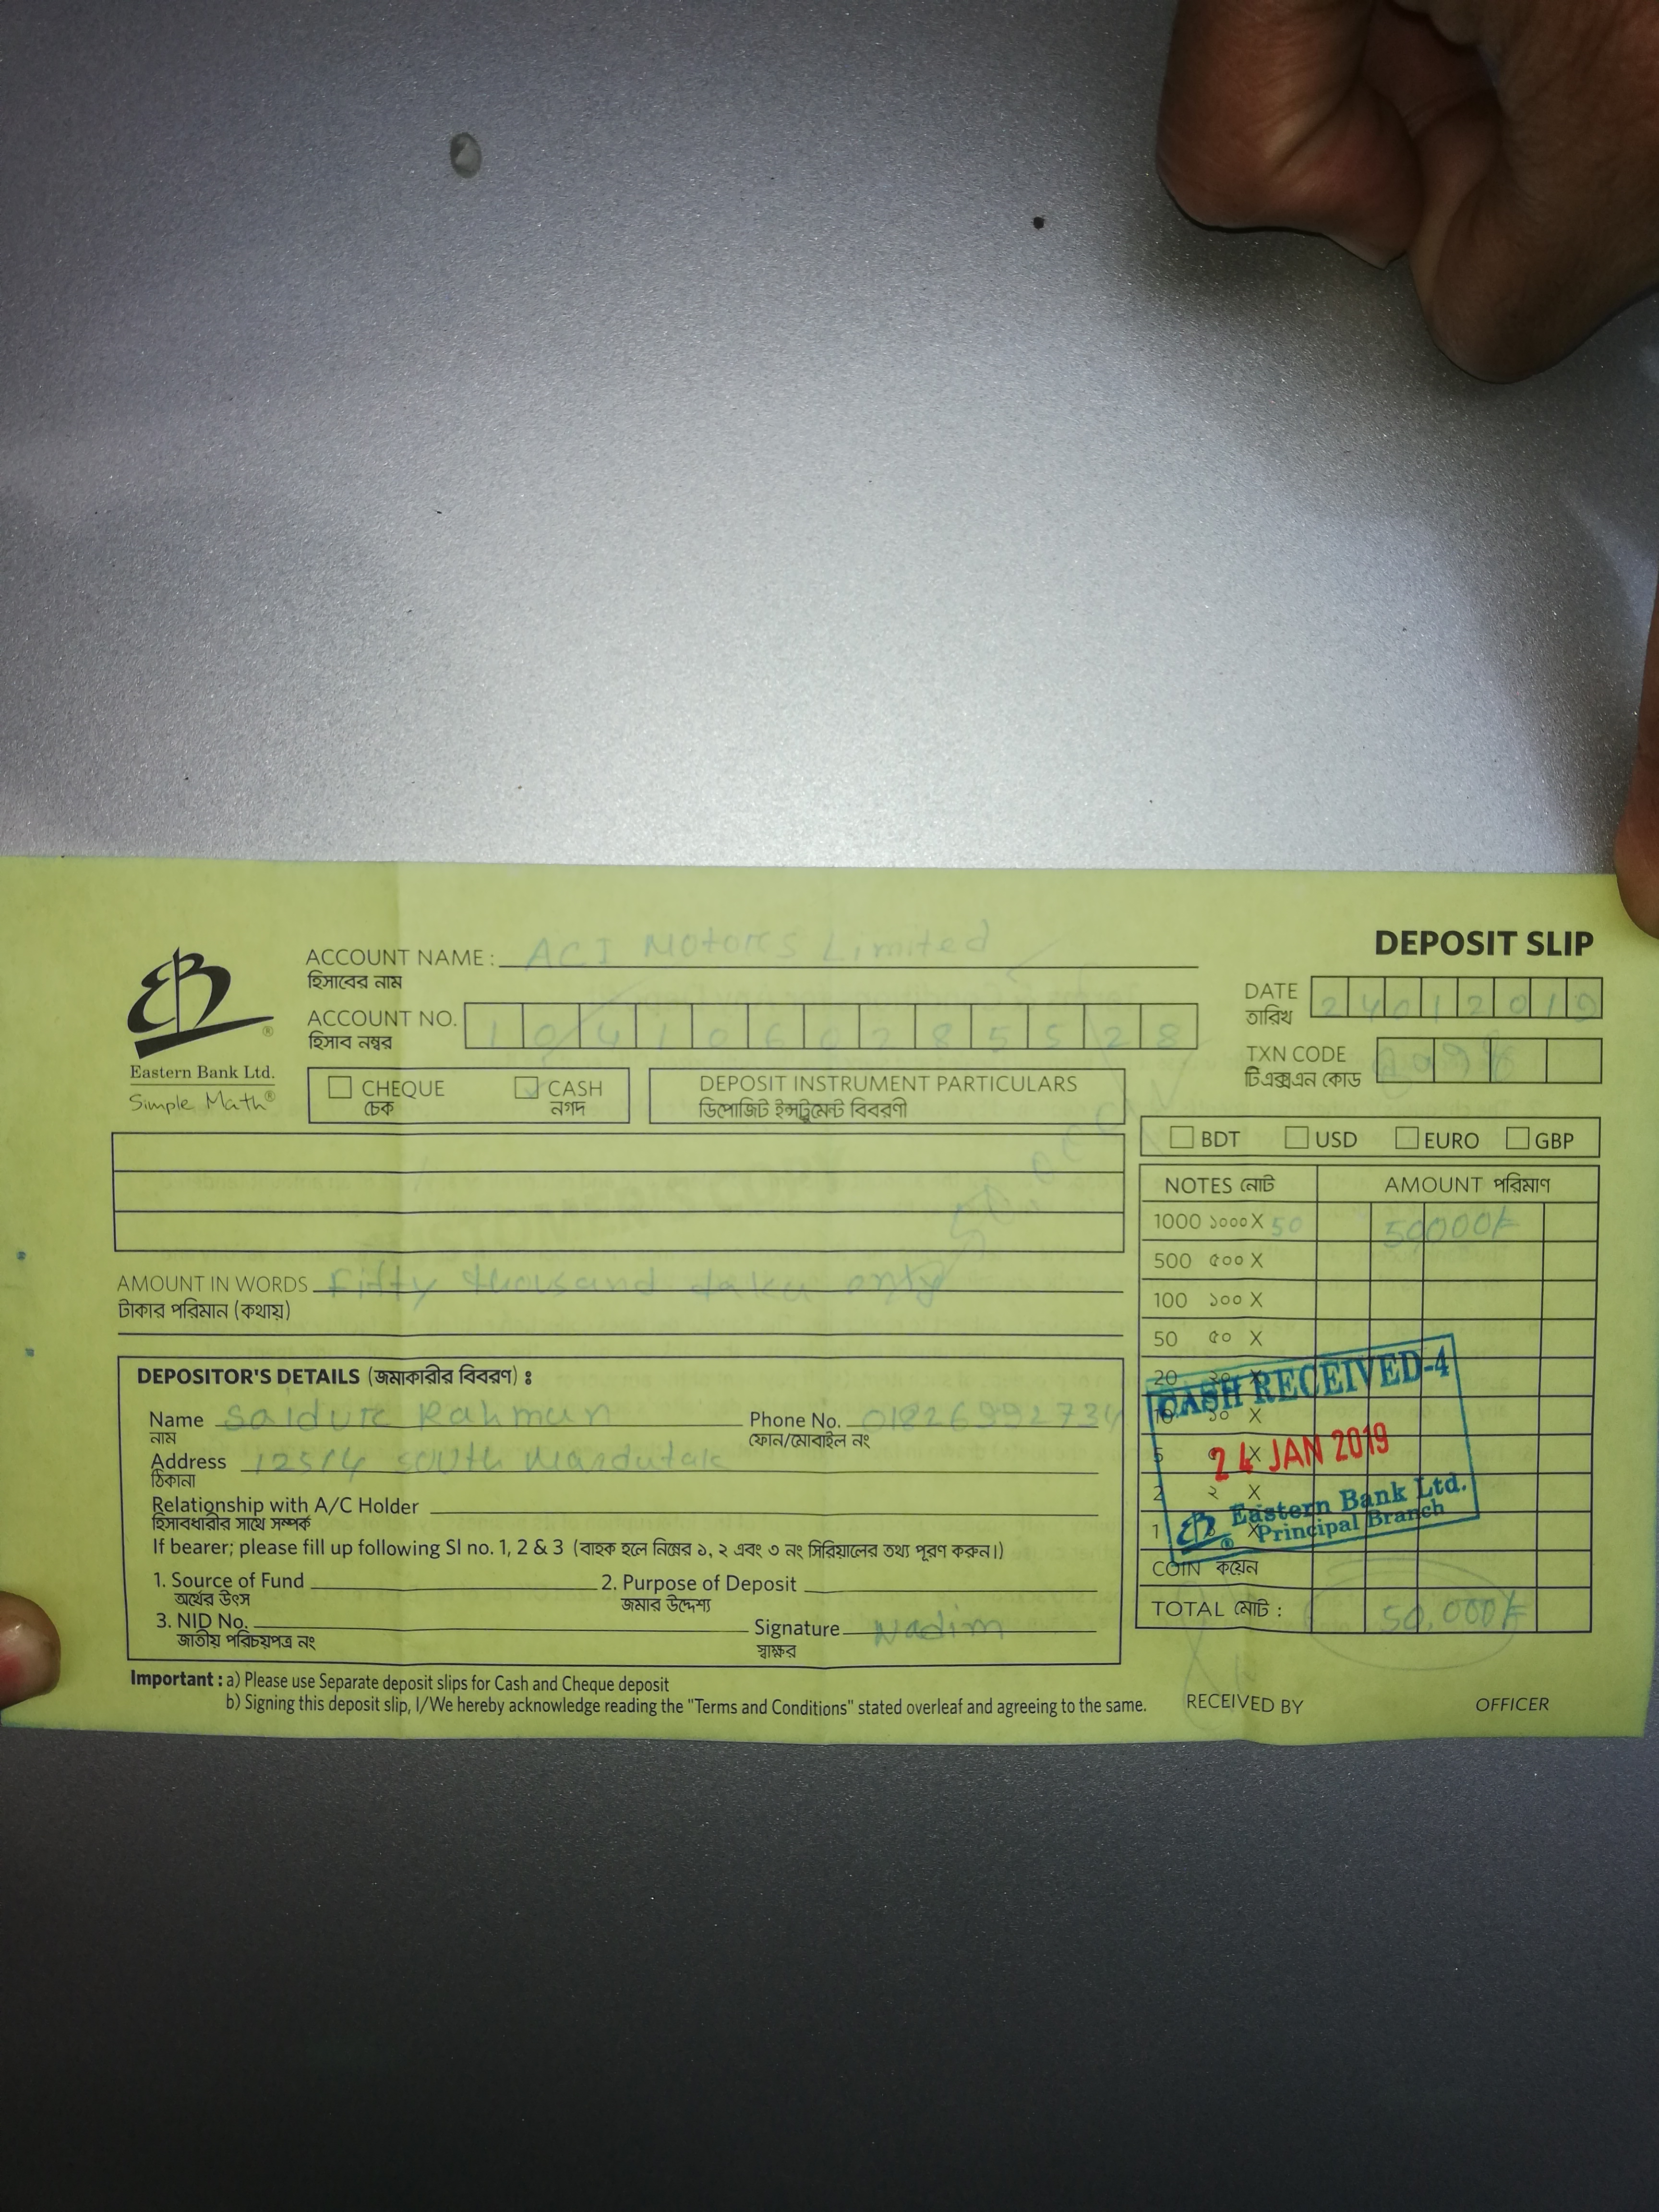 DEPOSIT SLIP
ACCOUNT NAME : ACI Motors Limited
হিসাবের নাম
DATE 24012019
তারিখ
ACCOUNT NO. 1041060285528
হিসাব নম্বর
Eastern Bank Ltd.
Simple Math®
TXN CODE
টিএক্সএন কোড
CHEQUE
চেক
CASH
নগদ
DEPOSIT INSTRUMENT PARTICULARS
ডিপোজিট ইন্সট্রুমেন্ট বিবরণী
BDT USD EURO GBP
NOTES নোট AMOUNT পরিমাণ
1000 ১০০০ X 50 50000/=
500 ৫০০ X
100 ১০০ X
50 ৫০ X
20 ২০ X
10 ১০ X
5 ৫ X
2 ২ X
1 ১ X
COIN কয়েন
TOTAL মোট : 50,000/=
CASH RECEIVED-4
24 JAN 2019
Eastern Bank Ltd.
Principal Branch
AMOUNT IN WORDS Fifty thousand taka only
টাকার পরিমান (কথায়)
DEPOSITOR'S DETAILS (জমাকারীর বিবরণ) :
Name Saidur Rahman Phone No. 01826992734
নাম ফোন/মোবাইল নং
Address 125/4 South
ঠিকানা
Relationship with A/C Holder
হিসাবধারীর সাথে সম্পর্ক
If bearer; please fill up following Sl no. 1, 2 & 3 (বাহক হলে নিম্নের ১, ২ এবং ৩ নং সিরিয়ালের তথ্য পূরণ করুন।)
1. Source of Fund 2. Purpose of Deposit
অর্থের উৎস জমার উদ্দেশ্য
3. NID No. Signature Nadim
জাতীয় পরিচয়পত্র নং স্বাক্ষর
Important : a) Please use Separate deposit slips for Cash and Cheque deposit
b) Signing this deposit slip, I/We hereby acknowledge reading the "Terms and Conditions" stated overleaf and agreeing to the same.
RECEIVED BY OFFICER